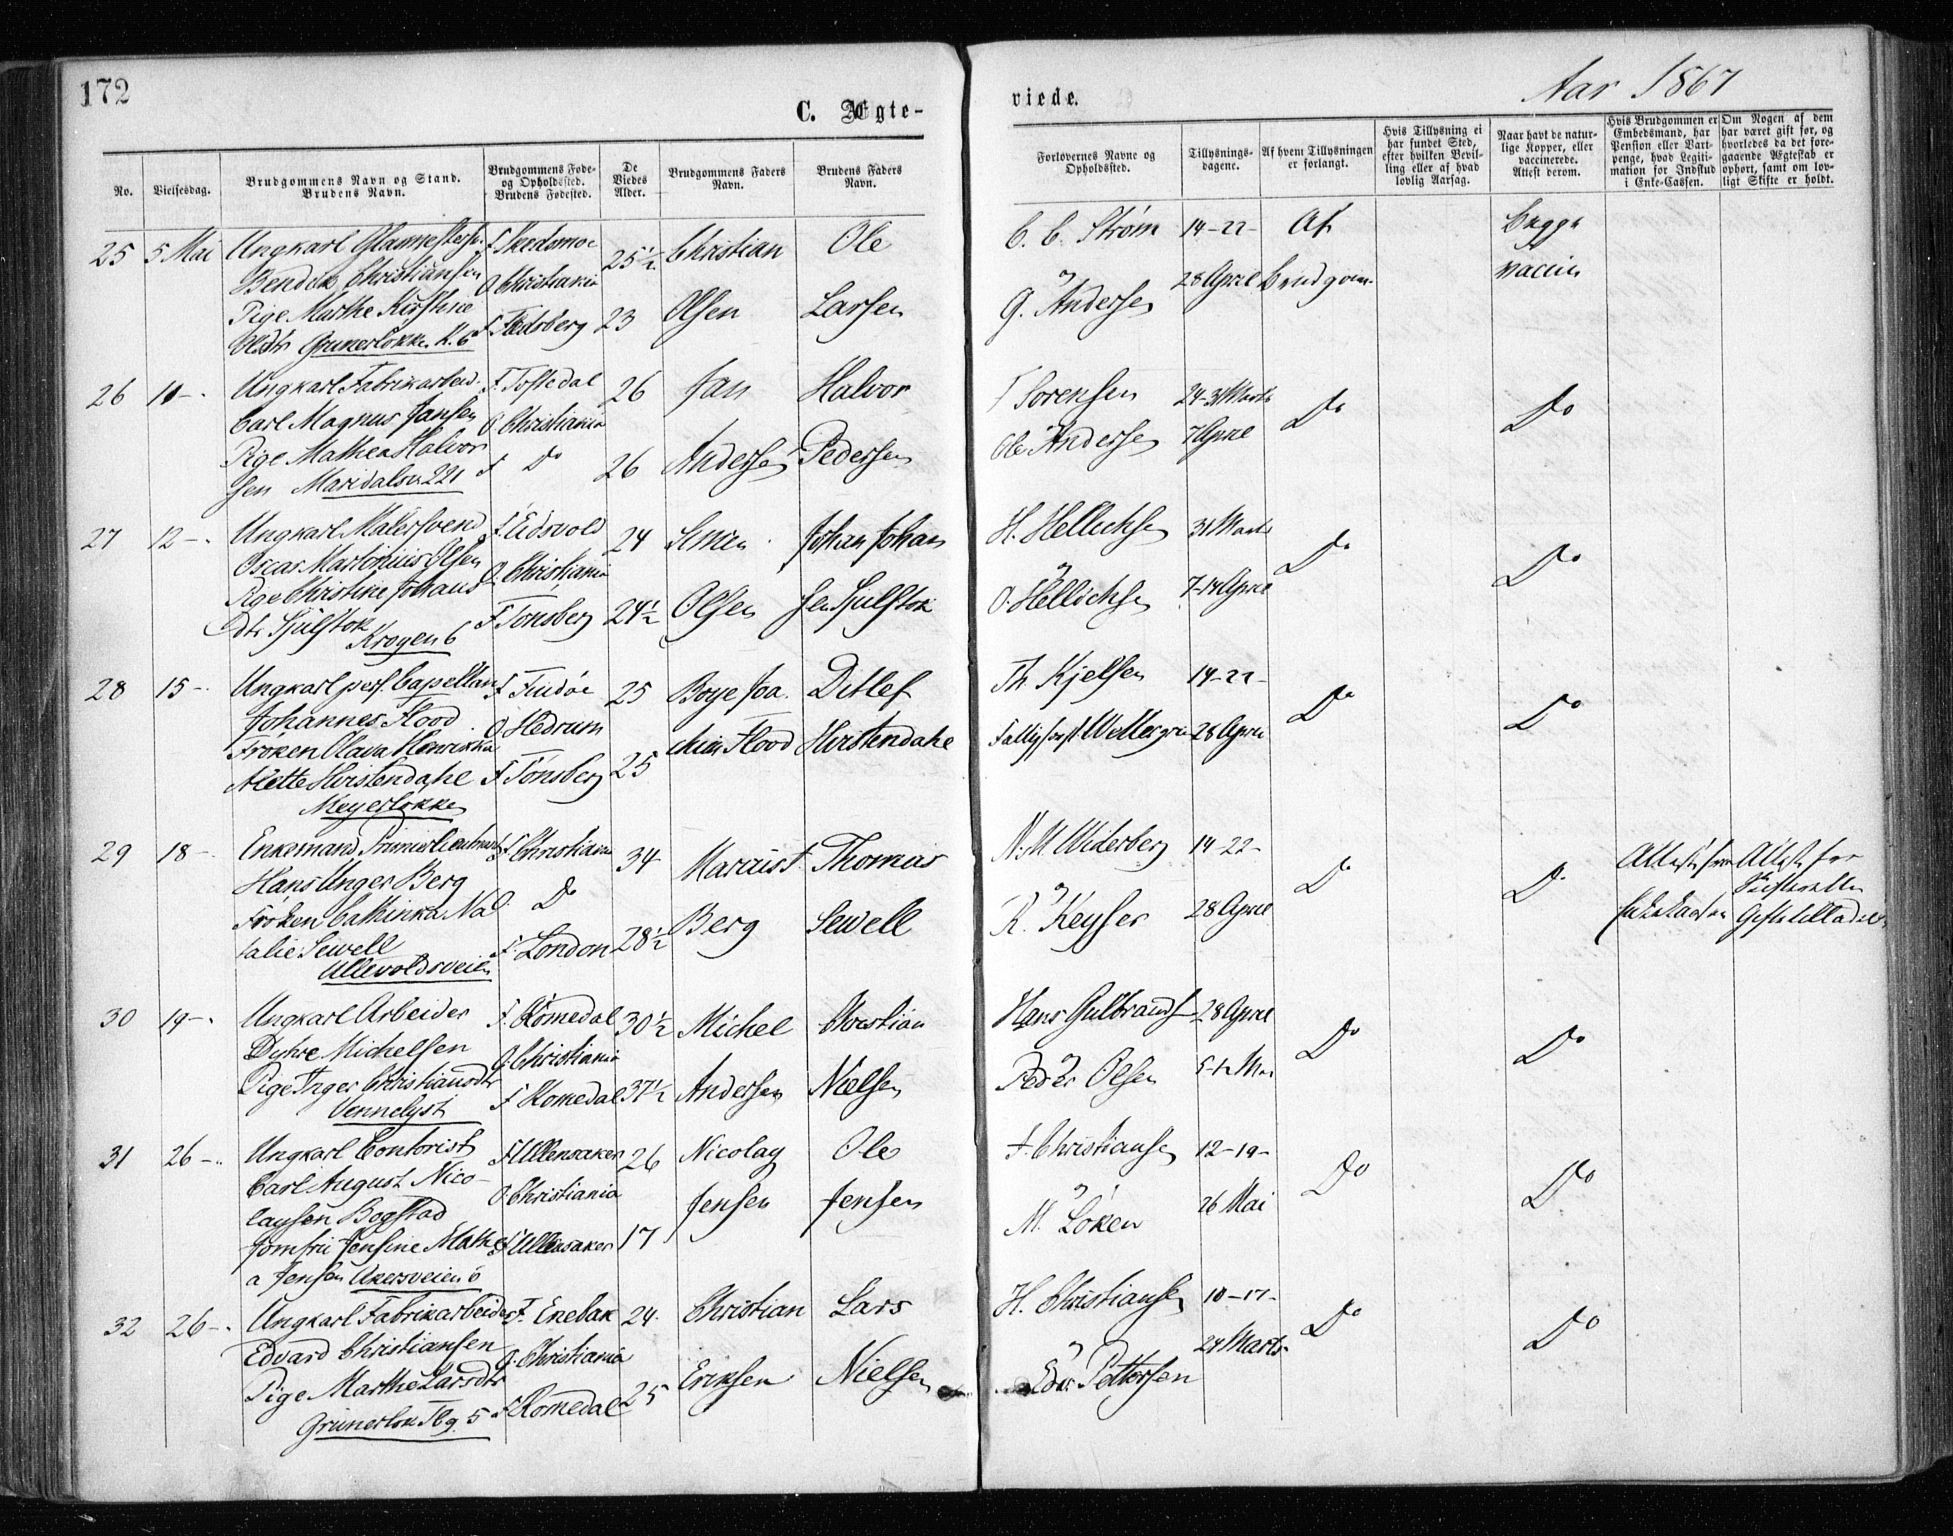 172
C. Ægte-
viede.
Aar 1867
No.
Vielsesdag.
Brudgommens Navn og Stand.
Brudens Navn.
Brudgommens Føde-
og Opholdssted.
Brudens Fødested.
De
Viedes
Alder.
Brudgommens Faders
Navn.
Brudens Faders
Navn.
Forlovernes Navne og
Opholdssted.
Tillysnings-
dagene.
Af hvem Tillysningen
er forlangt.
Hvis Tillysning ei
har fundet Sted,
efter hvilken Bevil-
ling eller af hvad
lovlig Aarsag.
Naar havt de natur-
lige Kopper, eller
vaccinerede.
Attest derom.
Hvis Brudgommen er
Embedsmand, har
Pension eller Vart-
penge, hvad Legiti-
mation for Indskud
i Enke-Cassen.
Om Nogen af dem
har været gift før, og
hvorledes da det fore-
gaaende Ægteskab er
ophørt, samt om lov-
ligt Skifte er holdt.
25 5 Mai Ungkarl F. Skedsmoe 25½ Christian Ole C. C. Strøm 14-22- Af Begge
Christiansen O. Christiania
Pige Marthe F. 23 Olsen Larsen G. Andersen 28 April Brudgom. vaccin
Grunerløkken K. 6
26 10 Ungkarl Fabrikarbeid. F. 26 Jan Halvor Sorensen 24-31 Marts Do Do
Carl Magnus Jansen O. Christiania
Pige Mathea Halvor F. Do 26 Andersen Pedersen Ole Andersen 7 April
sen Maridalsv. 221
27 12 Ungkarl Malersvend F. Eidsvold 24 Simen Johan Johan H. Hellichsen 31 Marts Do Do
Oscar Martinius Olsen O. Christiania
Pige Christine Johans F. Tonsberg 24½ Olsen sen Sjulstok O. Hellichsen 7-14 April
Dtr Sjulstok
Krogen 6
28 15 Ungkarl pers. Capellan F. Findöe 25 Boye Joa Ditlef Th. Kjelsen 14-22- Do Do
Johannes Flood O. Hedrum
Frøken Olava Henrikka chim Flood 28 April
Alette F. Tönsberg 25
Meyerløkken
29 18 Enkemand Premierlieutnant F. Christiania 34 Thomas N. M. Widerberg 14-22- Do Do
Hans Unger Berg O. Do
Frøken Cathinka Na
talie Sewell F. London 28½ Berg Sewell R. Keyser 28 April
Ullevoldsveien
30 19 Ungkarl Arbeider F. Romedal 30½ Michel Christian Hans Gulbrands 28 April Do Do
Michelsen O. Christiania
Pige Inger Christiansdtr F. Romedal 37½ Andersen Nielsen Peder Olsen 5-12 Mai
Vennelyst
31 26 Ungkarl Contorist F. Ullensaker 26 Nicolay Ole Christiansen 12-19- Do Do
Carl August Nico- O. Christiania
laysen Bogstad Jensen Jensen M. Löken 26 Mai
Jomfru Jensine Mathe F. Ullensaker 17
a Jensen Akersveien 6
32 26 Ungkarl Fabrikarbeider F. Enebak 24 Christian Lars H. Christiansen 10-17- Do Do
Edvard Christiansen O. Christiania
Pige Marthe Larsdtr F. Romedal 25 Eriksen Nielsen Pettersen 24 Marts
Grünerløk Tbg. 5